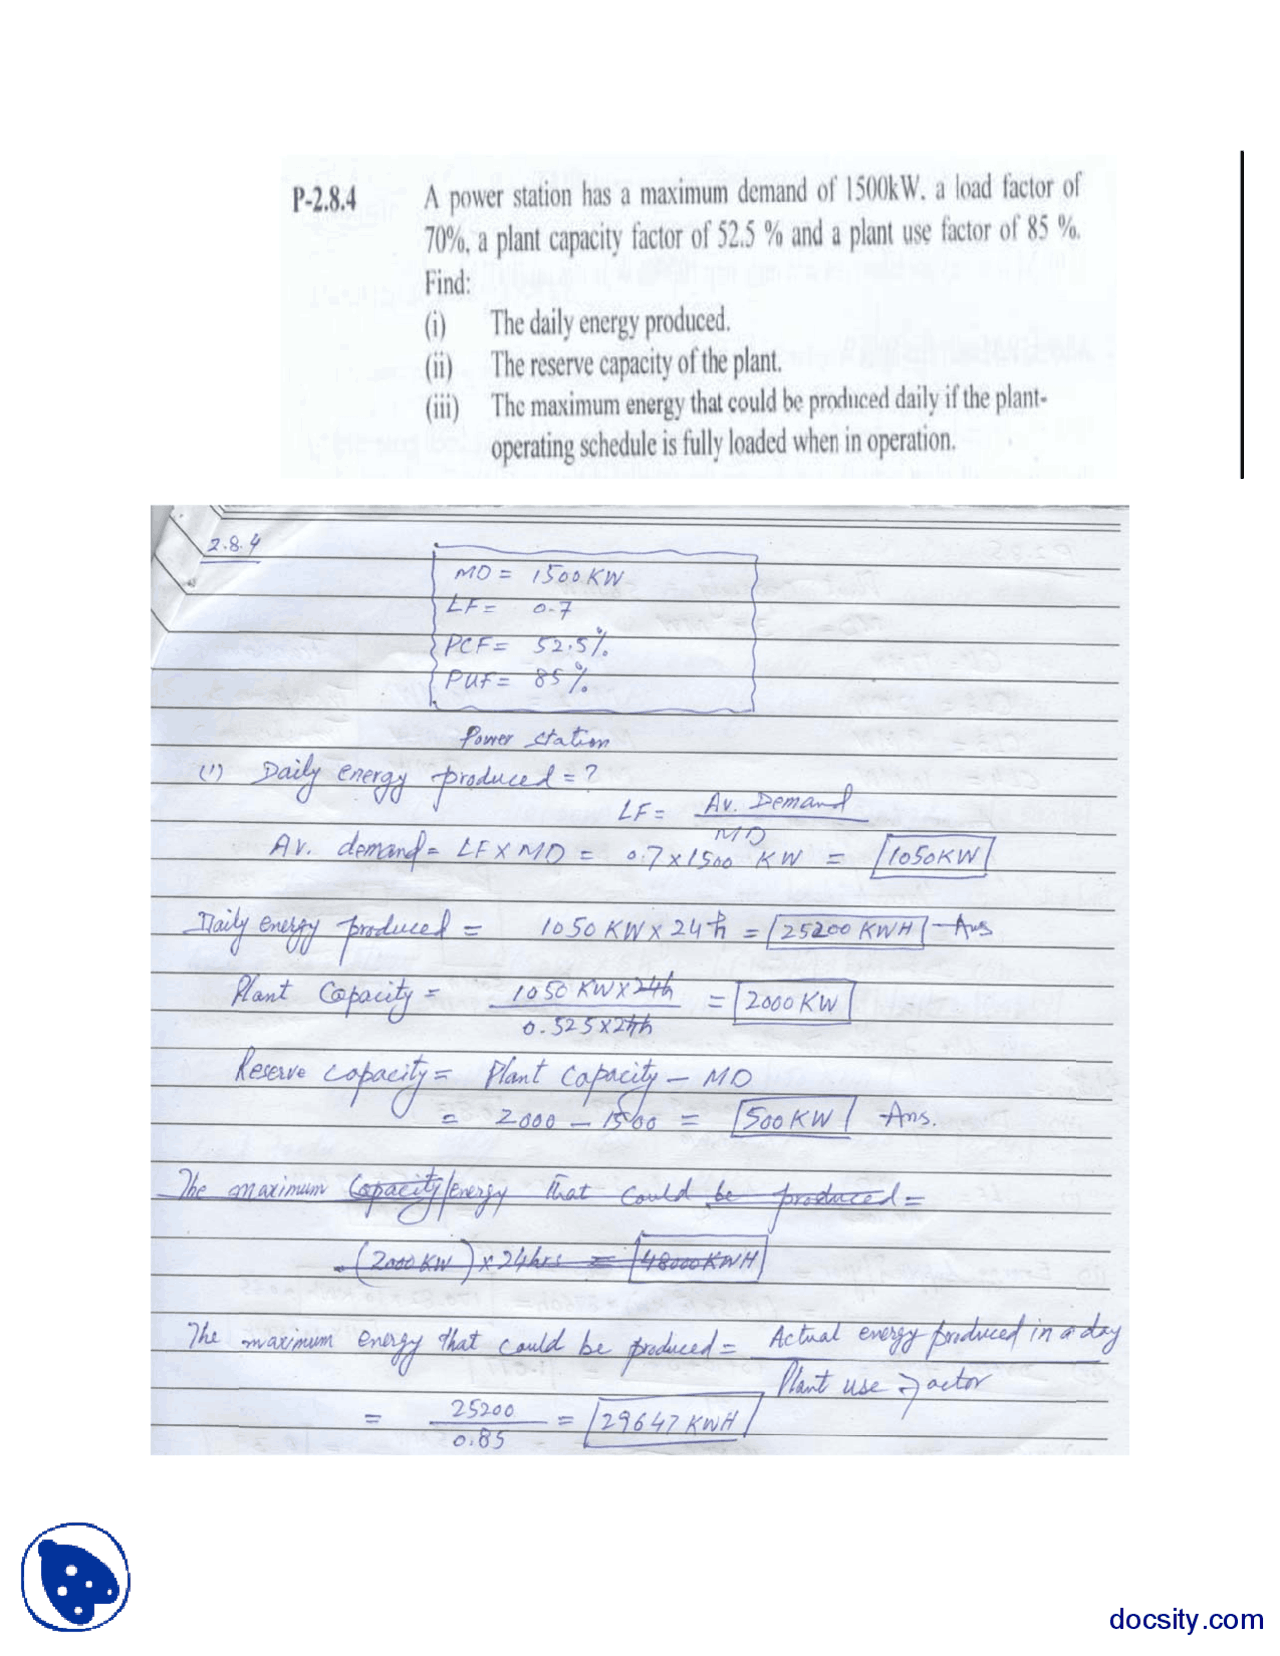 P-2.8.4 A power station has a maximum demand of 1500kW, a load factor of
70%, a plant capacity factor of 52.5 % and a plant use factor of 85 %.
Find:
(i) The daily energy produced.
(ii) The reserve capacity of the plant.
(iii) The maximum energy that could be produced daily if the plant-
operating schedule is fully loaded when in operation.
2.8.4
MD = 1500 KW
LF = 0.7
PCF = 52.5%
PUF = 85%
Power station
(i) Daily energy produced = ?
LF = Av. Demand
MD
Av. demand = LF X MD = 0.7 x 1500 KW = 1050KW
Daily energy produced = 1050 KW x 24 h = 25200 KWH - Ans
Plant Capacity = 1050 KW x 24h = 2000 KW
0.525 x 24h
Reserve Capacity = Plant Capacity - MD
= 2000 - 1500 = 500 KW Ans.
The maximum Capacity/energy that could be produced =
(2000 KW) x 24hrs = 48000 KWH
The maximum energy that could be produced = Actual energy produced in a day
Plant use Factor
= 25200 = 29647 KWH
0.85
docsity.com